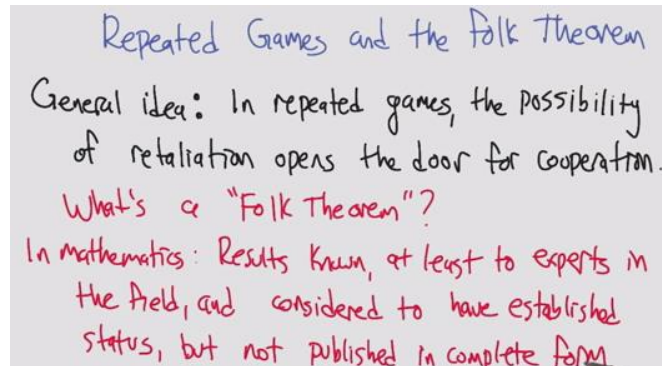 Repeated Games and the Folk Theorem
General idea: In repeated games, the possibility
of retaliation opens the door for cooperation.
What's a "Folk Theorem"?
In mathematics: Results known, at least to experts in
the field, and considered to have established
status, but not published in complete form